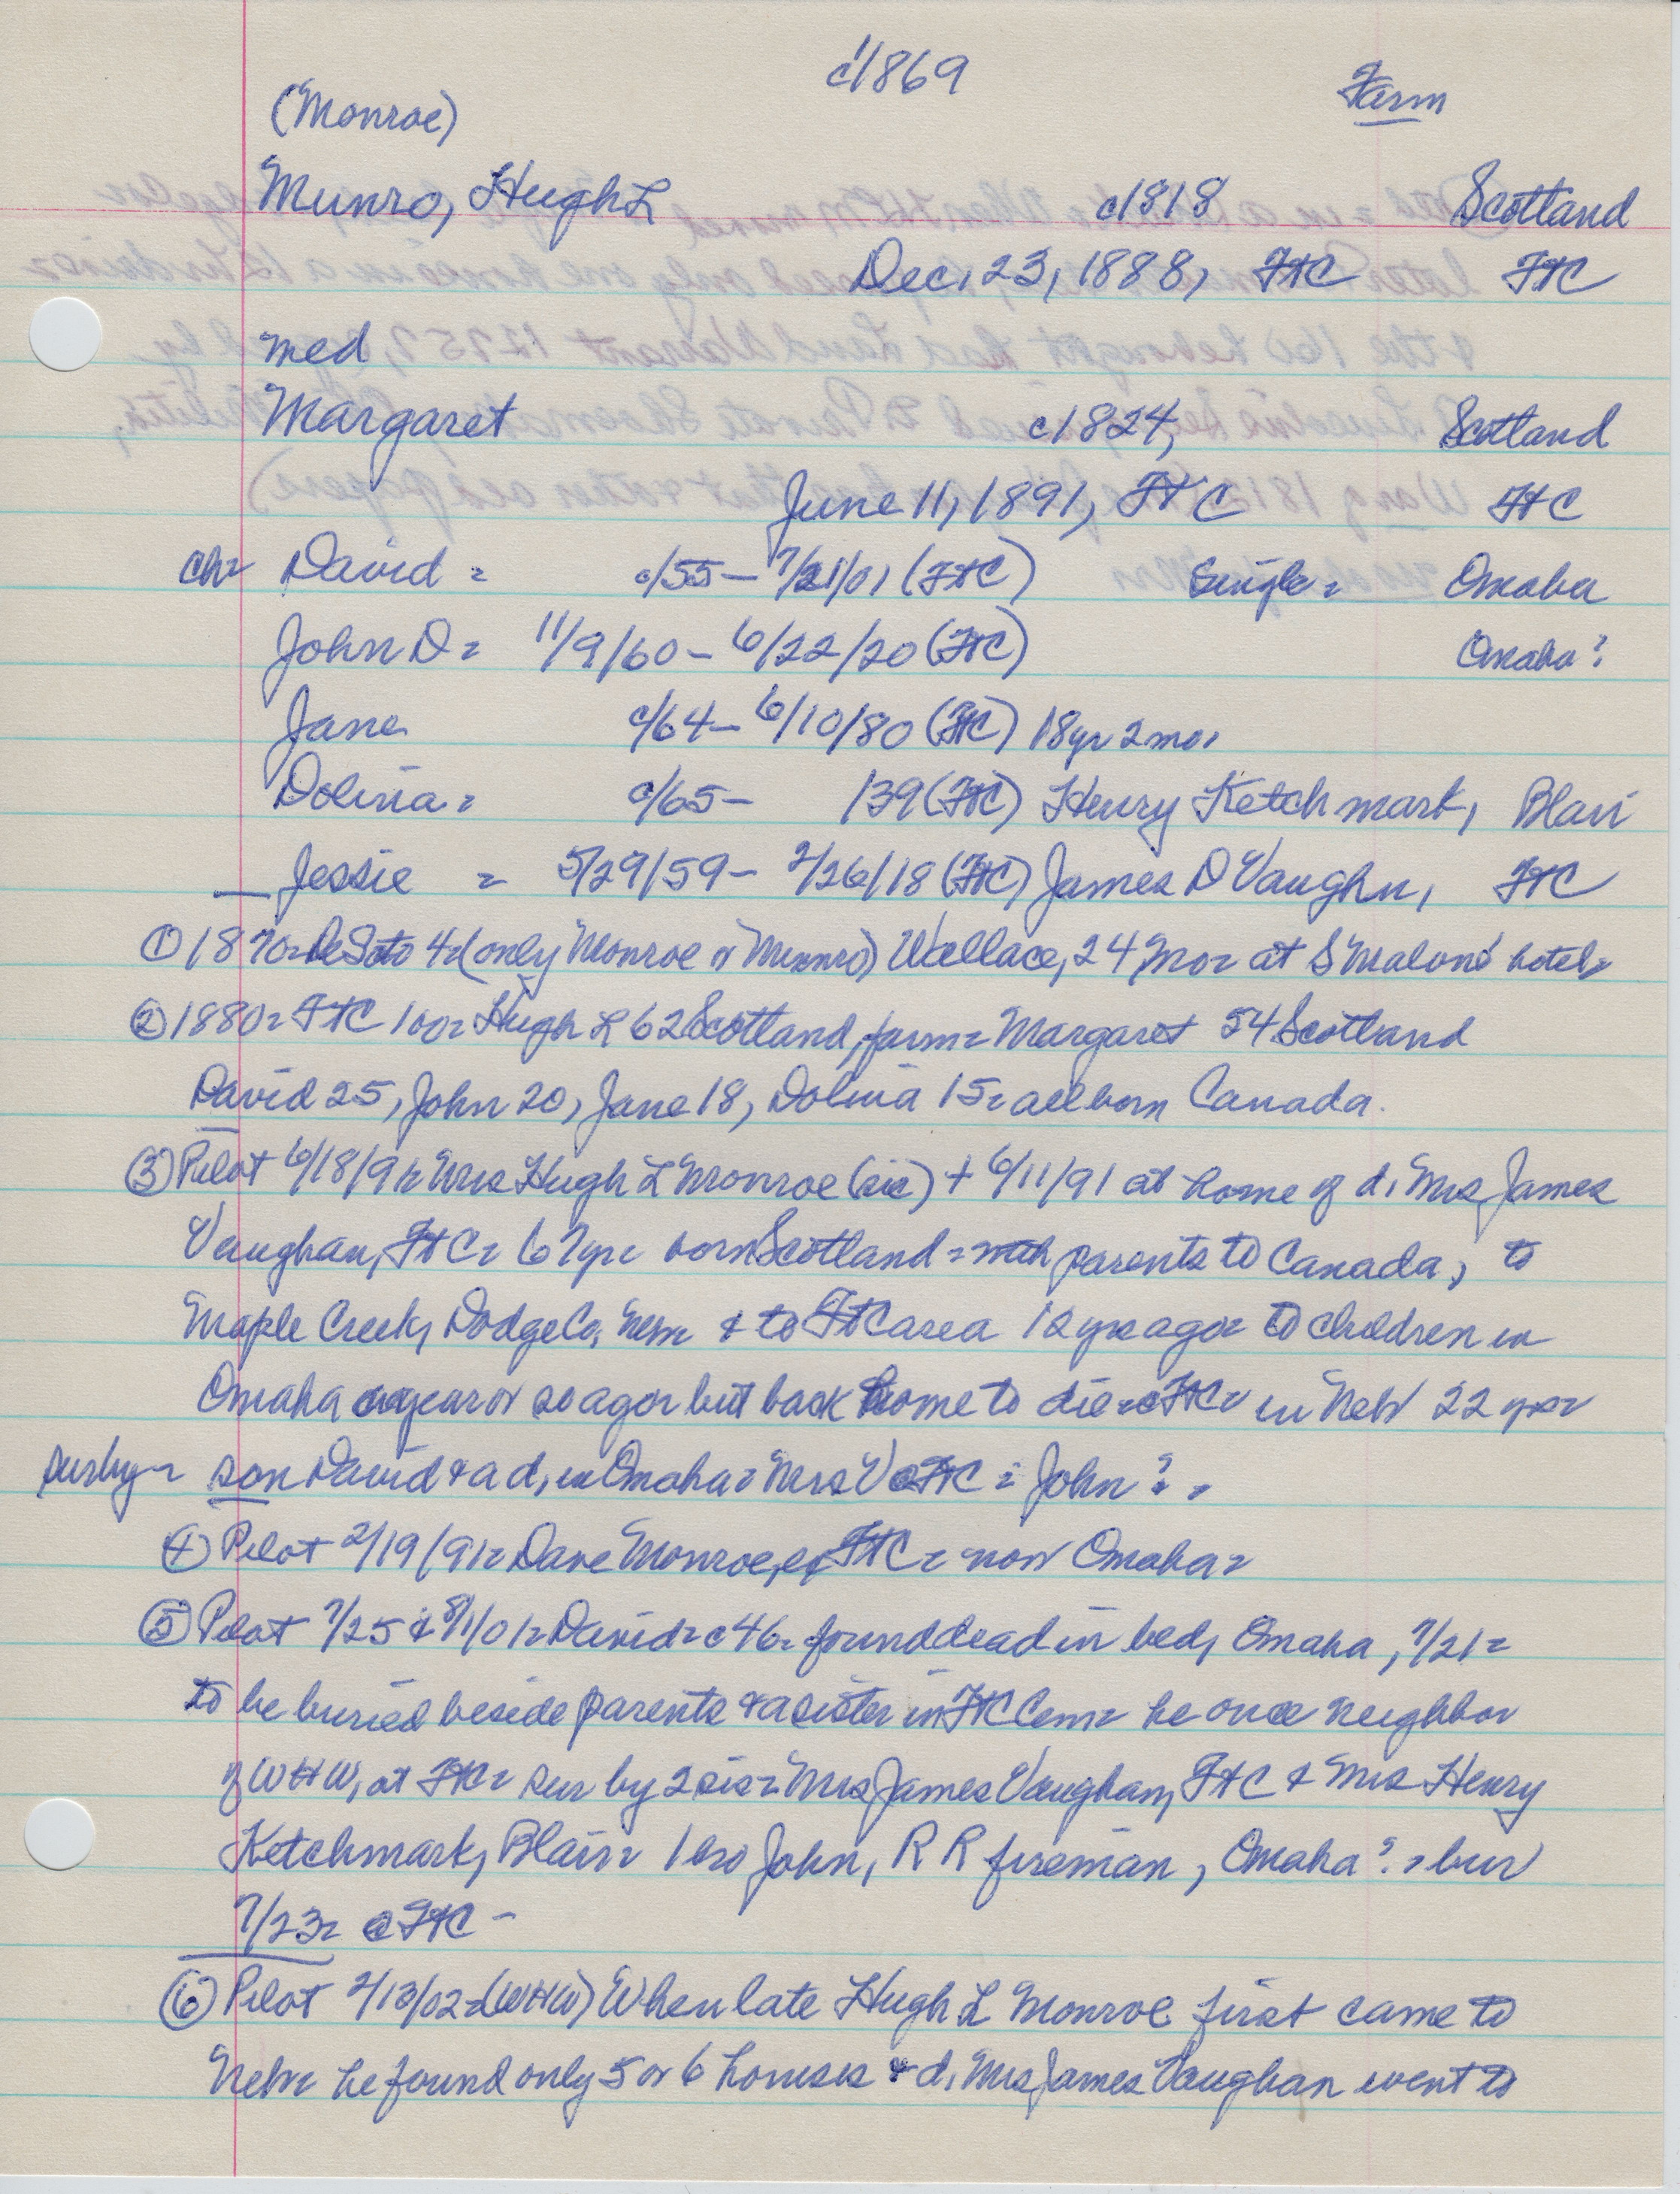 c1869
Farm
(Monroe)
Munro, Hugh L c1818 Scotland
Dec, 23, 1888, FtC FtC
med
Margaret c1824, Scotland
June 11, 1891, FtC FtC
ch= David = c/55 – 7/21/01 (FtC) Single = Omaha
John D = 11/9/60 – 6/22/20 (FtC) Omaha?
Jane c/64 – 6/10/80 (FtC) 18yr 2mo,
Dolina = c/65 – /39 (FtC) Henry Ketchmark, Blair
Jessie = 5/29/59 – 2/26/18 (FtC) James D Vaughn, FtC
① 1870= DeSoto 4= (only Monroe or Munro) Wallace, 24 at S Malone' hotel=
② 1880= FtC 100= Hugh L 62 Scotland, farm= Margaret 54 Scotland
David 25, John 20, Jane 18, Dolina 15= all born Canada.
③ Pilot 6/18/91= Mrs Hugh L Monroe (sic) + 6/11/91 at home of d, Mrs James
Vaughan, FtC= 67yr= born Scotland = with parents to Canada, to
Maple Creek, Dodge Co, Neb= & to FtC area 12 yrs ago= to children in
Omaha a year or so ago= but back home to die= cFtC= in Neb 22 yrs=
sur by = son David & a d, in Omaha= Mrs V @ FtC = John? =
④ Pilot 2/19/91= Dave Monroe, of FtC = now Omaha=
⑤ Pilot 7/25 & 8/1/01= David= c46= found dead in bed, Omaha, 7/21=
to be buried beside parents & a sister in FtC Cem= he once neighbor
of WHW, at FtC= sur by 2 sis= Mrs James Vaughan, FtC & Mrs Henry
Ketchmark, Blair= 1 bro John, R R fireman, Omaha? = bur
7/23= @ FtC –
⑥ Pilot 2/13/02= (WHW) When late Hugh L Monroe first came to
Neb= he found only 5 or 6 houses & d, Mrs James Vaughan went to